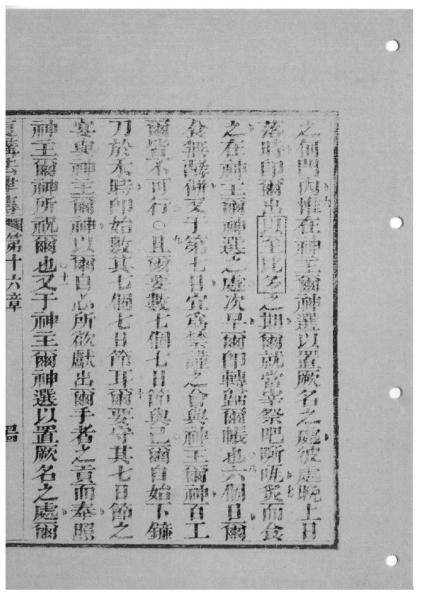 之個門內惟在神王爾神選以置厥名之處彼處晚上日
落時即爾出以至比多之期爾就當宰祭吧𠵽咓炙而食
之在神王爾神選之處次早爾即轉歸爾帳也六個日爾
食無酵餅又于第七日宜為禁謹之會與神王爾神百工
爾皆不可行○且爾要數七個七日節與己爾自始下鐮
刀於禾時即始數其七個七日節耳爾要守其七日節之
宴與神王爾神以爾自志所欲獻出爾手者之貢而奉照
神王爾神所祝爾也又于神王爾神選以置厥名之處爾
復講法律傳 第十六章